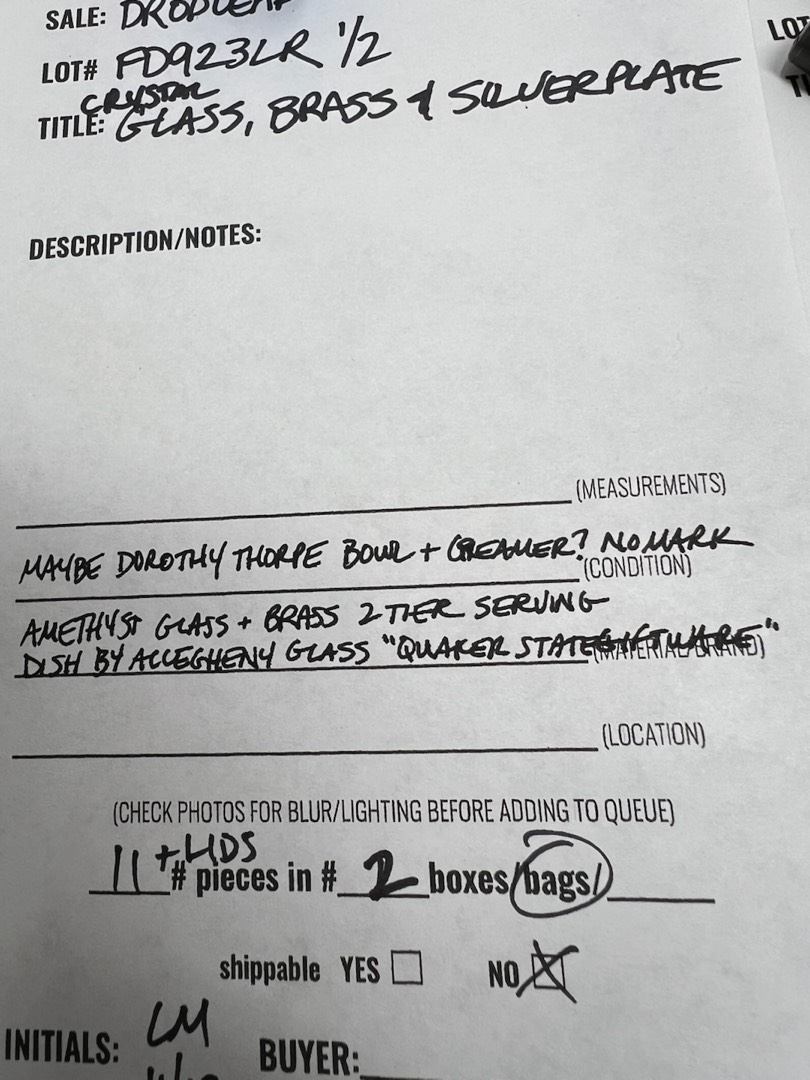 SALE: DROPLEAF
LOT# FD923LR 1/2
LOT
CRYSTAL
TITLE: GLASS, BRASS & SILVERPLATE
DESCRIPTION/NOTES:
(MEASUREMENTS)
MAYBE DOROTHY THORPE BOWL + CREAMER? NO MARK
(CONDITION)
AMETHYST GLASS + BRASS 2 TIER SERVING
DISH BY ALLEGHENY GLASS "QUAKER STATE GIFTWARE"
(MATERIAL/BRAND)
(LOCATION)
(CHECK PHOTOS FOR BLUR/LIGHTING BEFORE ADDING TO QUEUE)
11 + LIDS # pieces in # 2 boxes/bags/
shippable YES NO
INITIALS: LM BUYER: